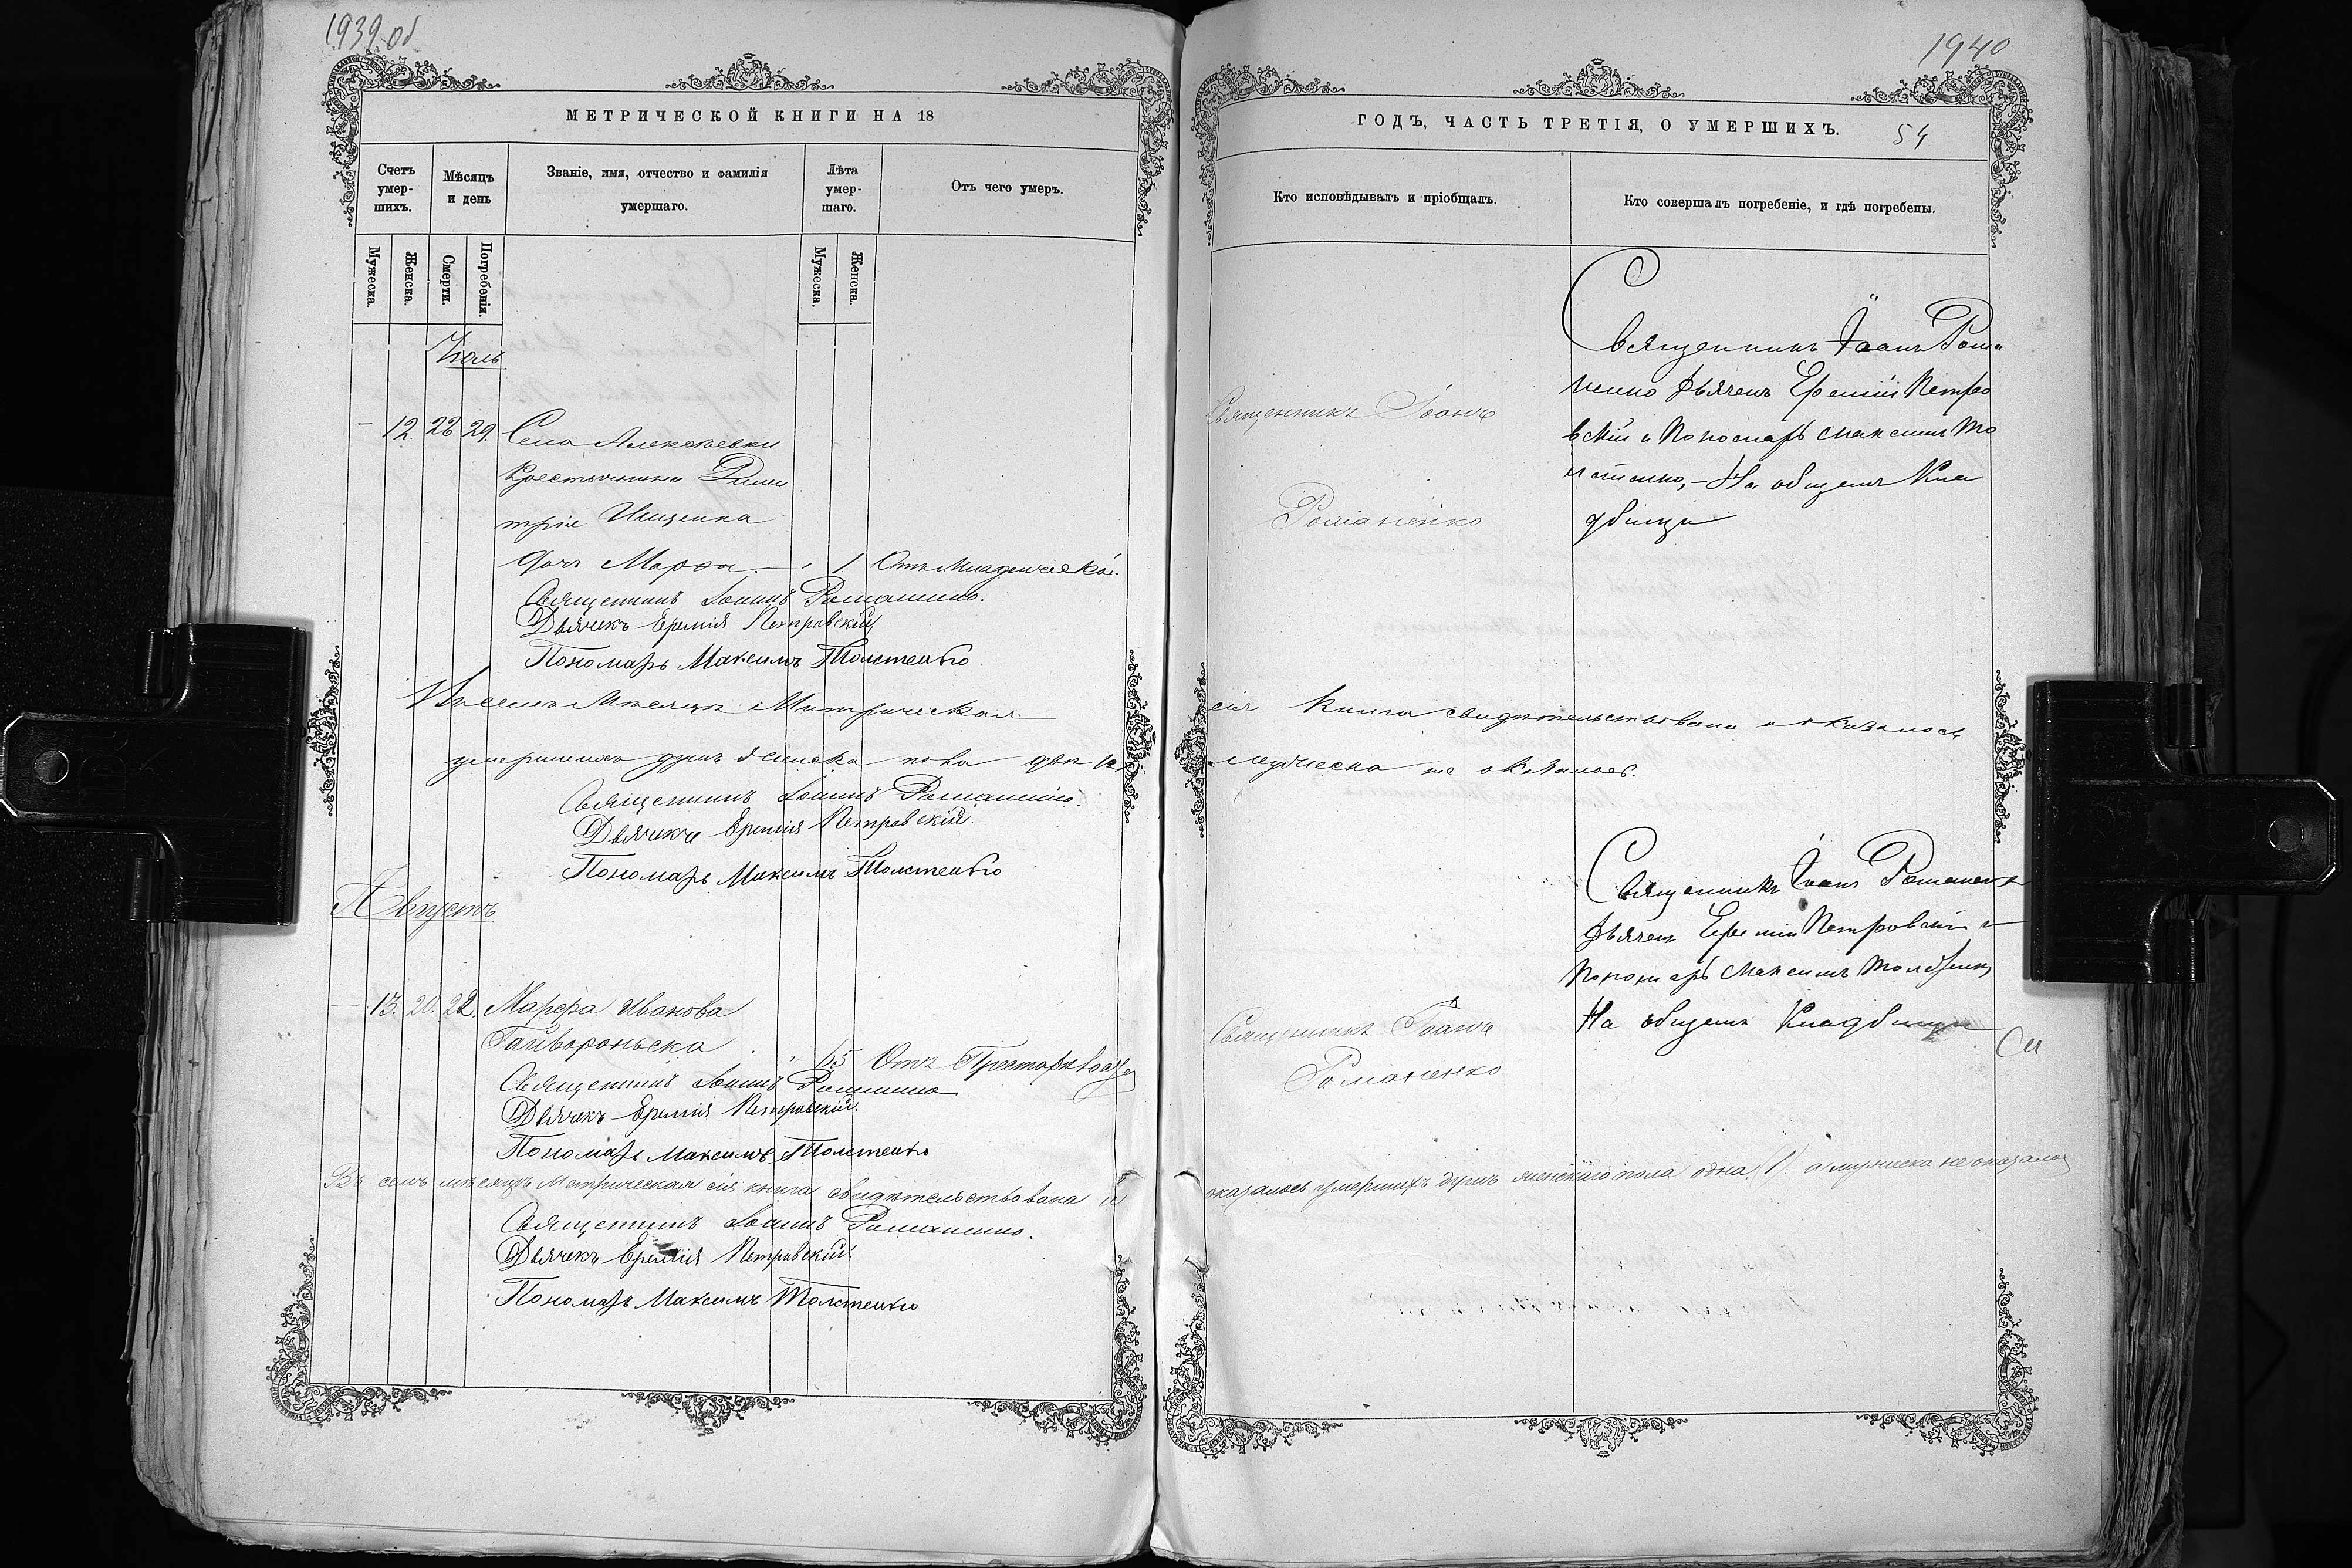 1939 об
МЕТРИЧЕСКОЙ КНИГИ НА 18
Счетъ умер- шихъ.
Мѣсяцъ и день
Званіе, имя, отчество и фамилія умершаго.
Лѣта умер- шаго.
Отъ чего умеръ.
Мужеска.
Женска.
Смерти.
Погребенія.
Мужеска.
Женска.
Іюль
— 12. 28 29. Села Алексѣевки
Крестьянина Дими
трія Ищенка
дочь Марѳа — " 1 Отъ Младенческой
Священникъ Іоаннъ Романенко.
Дьячекъ Еремія Петровскій
Пономарь Максимъ Толстенко
Въ семъ Мѣсяцѣ Метрическая
умершихъ душъ женска пола двѣ
Священникъ Іоаннъ Романенко.
Дьячекъ Еремія Петровскій.
Пономарь Максимъ Толстенко
Августъ
— 13. 20. 22. Марфа Иванова
Гайвороньска
" 65 Отъ Престарѣлости
Священникъ Іоаннъ Романенко
Дьячекъ Еремія Петровскій.
Пономарь Максимъ Толстенко
Въ семъ мѣсяцѣ Метрическая сія книга свидѣтельствована и
Священникъ Іоаннъ Романенко.
Дьячекъ Еремія Петровскій.
Пономарь Максимъ Толстенко
1940
ГОДЪ, ЧАСТЬ ТРЕТІЯ, О УМЕРШИХЪ.
54
Кто исповѣдывалъ и пріобщалъ.
Кто совершалъ погребеніе, и гдѣ погребены.
Священникъ Іоаннъ
Романенко
Священникъ Іоанъ Рома
ненко Дьячекъ Еремій Петро
вскій и Пономарь Максимъ То
лстенко, — На общемъ Кла
дбищи
сія Книга свидѣтельствована и оказалось
мужеска не оказалось.
Священникъ Іоаннъ
Романенко
Священникъ Іоанъ Романенко
Дьячекъ Еремій Петровскій и
Пономарь Максимъ Толстенко
На общемъ Кладбищи
оказалось умершихъ душъ женскаго пола одна (1) а мужеска не оказалось